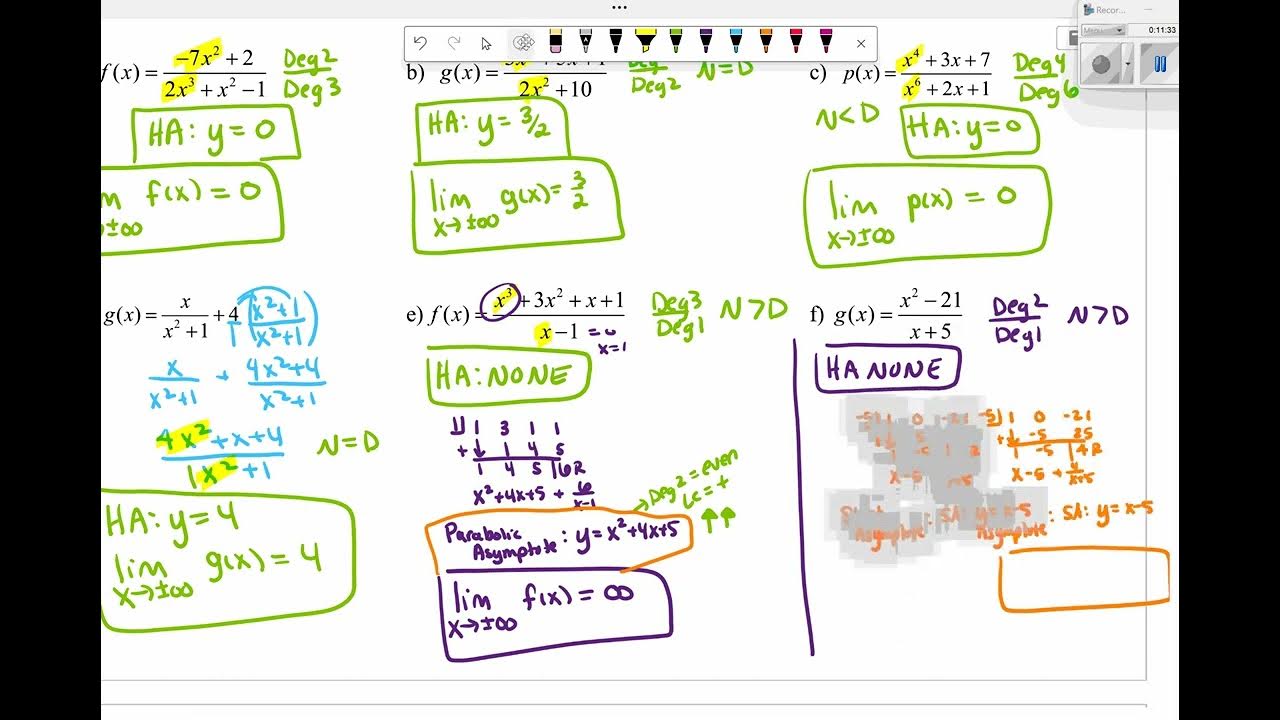 Recor...
Menu
0:11:33
f(x) = -7x² + 2 / 2x³ + x² - 1
Deg2 / Deg3
HA: y = 0
f(x) = 0
±∞
b) g(x) = / 2x² + 10
Deg2
N = D
HA: y = 3/2
lim x→±∞ g(x) = 3/2
c) p(x) = x⁴ + 3x + 7 / x⁶ + 2x + 1
Deg4 / Deg6
N < D
HA: y = 0
lim x→±∞ p(x) = 0
g(x) = x / x² + 1 + 4 (x²+1 / x²+1)
x / x²+1 + 4x²+4 / x²+1
4x² + x + 4 / 1x² + 1
N = D
HA: y = 4
lim x→±∞ g(x) = 4
e) f(x) = x³ + 3x² + x + 1 / x - 1
= 0
x = 1
Deg3 / Deg1
N > D
HA: NONE
1| 1 3 1 1
+ ↓ 1 4 5
1 4 5 |6R
x² + 4x + 5 + 6 / x-1
→ Deg2 = even
LC = +
↑↑
Parabolic Asymptote: y = x² + 4x + 5
lim x→±∞ f(x) = ∞
f) g(x) = x² - 21 / x + 5
Deg2 / Deg1
N > D
HA NONE
-5| 1 0 -21
+ ↓ -5 25
1 -5 |4R
x - 5 + 4 / x+5
Asymptote: SA: y = x-5